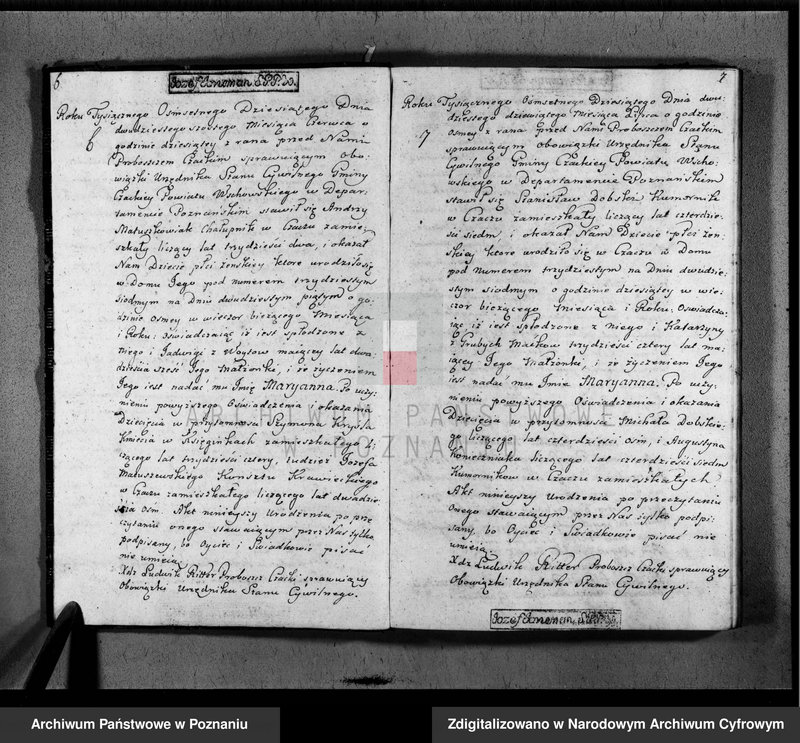 6
Roku Tysiącznego Osmsetnego Dziesiątego Dnia
dwudziestego szostego Miesiąca Czerwca o
godzinie dziesiątey z rana przed Nami
Proboszczem Czackim sprawuiącym obo-
wiązki Urzędnika Stanu Cywilnego Gminy
Czackiey Powiatu Wschowskiego w Depar-
tamencie Poznańskim stawił się Andrzy
Matuszkowiak Chałupnik w Czaczu zamie-
szkały liczący lat trzydzieści dwa, i okazał
Nam Dziecie płci żenskiey ktore urodziło się
w Domu Jego pod numerem trzydziestym
siodmym na Dniu dwudziestym piątym o go-
dzinie osmey w wieczor bieżącego Miesiąca
i Roku; oświadczaiąc iż iest spłodzone z
niego i Jadwigi z Woytow maiącey lat dwa-
dzieścia sześć Jego Małżonki, i że życzeniem
Jego iest nadać mu Imie Maryanna. Po uczy-
nieniu powyższego Oświadczenia i okazania
Dziecięcia w przytomności Szymona
Kmiecia w Xięginkach zamieszkałego li-
czącego lat trzydzieści cztery, tudzież Jozefa
Matuszewskiego Konsztu Krawieckiego
w Czaczu zamieszkałego liczącego lat dwadzie-
ścia osm. Akt ninieyszy Urodzenia po prze-
czytaniu onego stawaiącym przez Nas tylko
podpisany, bo Oyciec i Świadkowie pisać
nie umieią
Xdz Ludwik Ritter Proboszcz Czacki sprawuiący
Obowiązki Urzędnika Stanu Cywilnego.
7
7
Roku Tysiącznego Osmsetnego Dziesiątego Dnia dwu-
dziestego dziewiątego Miesiąca Lipca o godzinie
Osmey z rana przed Nami Proboszczem Czackim
sprawuiącym obowiązki Urzędnika Stanu
Cywilnego Gminy Czackiey Powiatu Wscho-
wskiego w Departamencie Poznańskim
stawił się Stanisław Dobski Kumornik
w Czaczu zamieszkały liczący lat czterdzie-
ści siedm, i okazał Nam Dziecie płci żen-
skiey ktore urodziło się w Czaczu w Domu
pod Numerem trzydziestym na Dniu dwudzie-
stym siodmym o godzinie dziesiątey w wie-
czor bieżącego Miesiąca i Roku; Oświadcza-
iąc iż iest spłodzone z niego i Katarzyny
z Grubych Maćkow trzydzieści cztery lat ma-
iącey Jego Małżonki, i że życzeniem Jego
iest nadać mu Imie Maryanna. Po uczy-
nieniu powyższego Oświadczenia i okazania
Dziecięcia w przytomności Michała Dobskie-
go liczącego lat czterdzieści osm, i Augustyna
Konieczniaka liczącego lat czterdzieści siedm
Kumornikow w Czaczu zamieszkałych
Akt ninieyszy Urodzenia po przeczytaniu
Onego stawaiącym przez Nas tylko podpi-
sany, bo Oyciec i Świadkowie pisać nie
umieią
Xdz Ludwik Ritter Proboszcz Czacki sprawuiący
Obowiązki Urzędnika Stanu Cywilnego.
ARCHIWUM PAŃSTWOWE
W POZNANIU
Archiwum Państwowe w Poznaniu
Zdigitalizowano w Narodowym Archiwum Cyfrowym